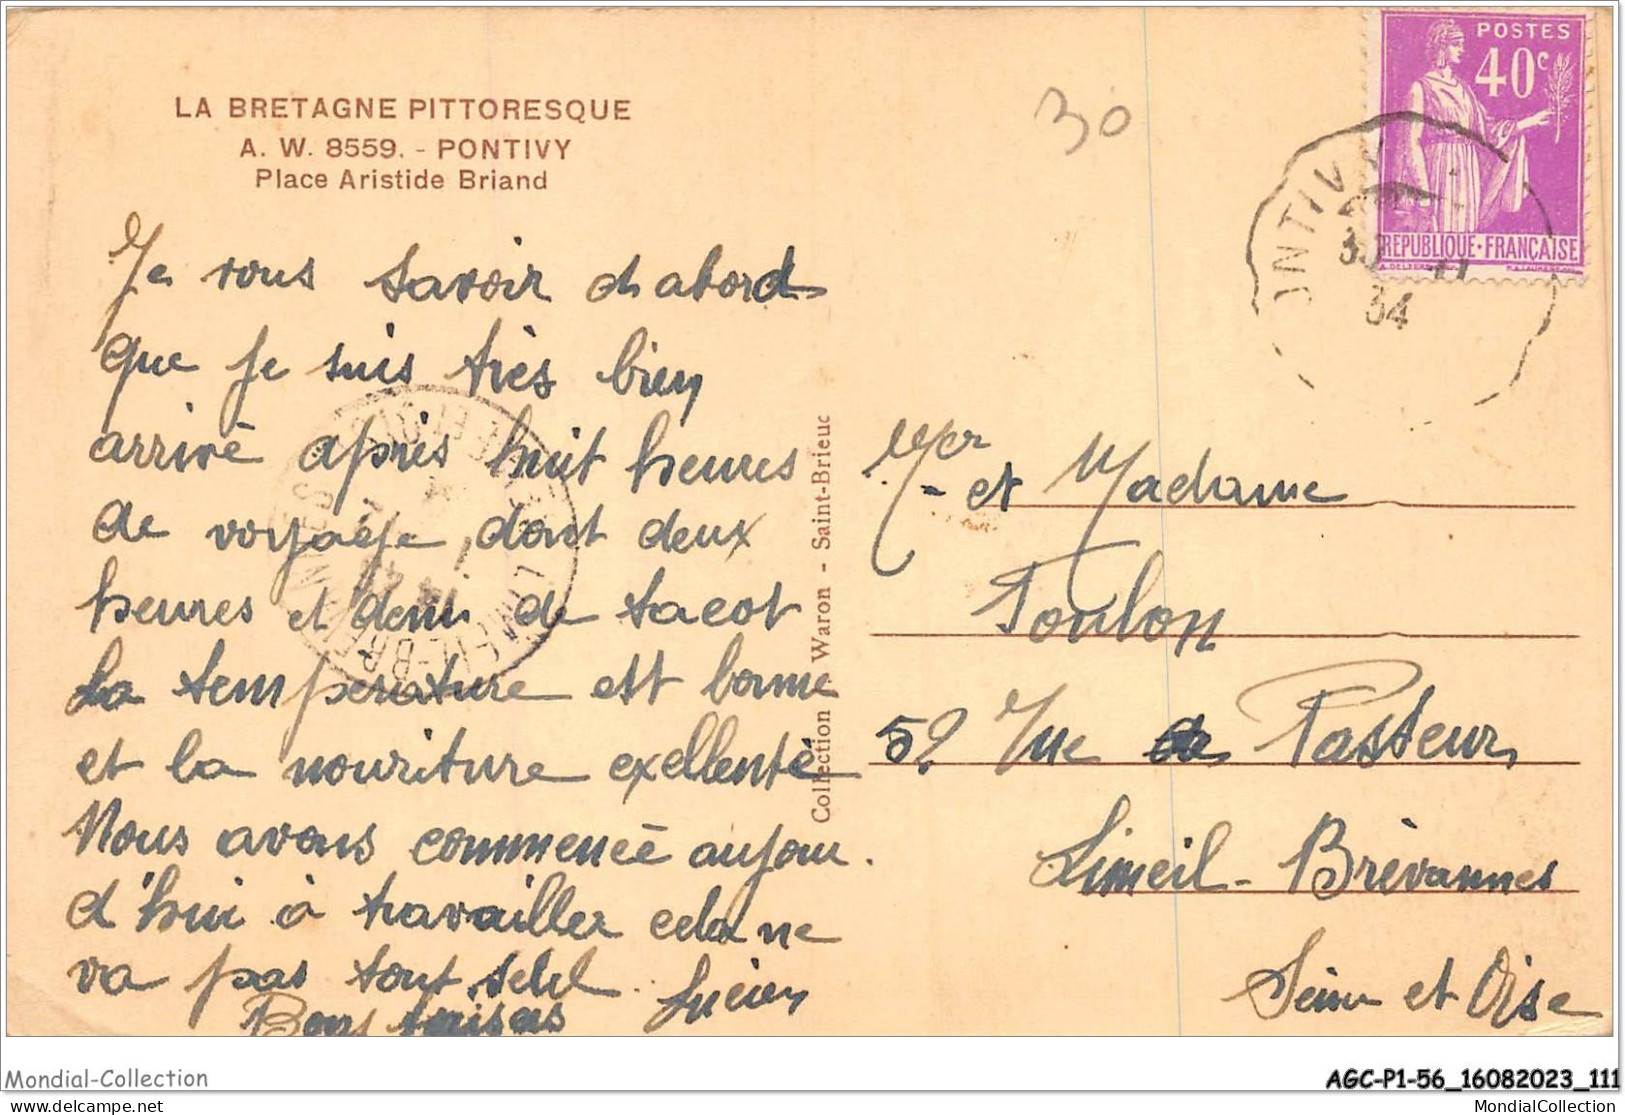 LA BRETAGNE PITTORESQUE
A. W. 8559. - PONTIVY
Place Aristide Briand
30
POSTES
40c
REPUBLIQUE·FRANÇAISE
ONTIVY
34
Je vous savoir d'abord
que je suis très bien
arrivé après huit heures
de voyage, dont deux
heures et demi de tacot
La temperature est bonne
et la nouriture exellente
Nous avons commencée aujour.
d'hui à travailler cela ne
va pas tout seul. Lucien
Bons baisers
Collection Waron - Saint-Brieuc
Mer et Madame
Toulon
52 rue de Pasteur
Limeil-Brèvannes
Seine et Oise
Mondial-Collection
AGC-P1-56_16082023_111
delcampe.net
MondialCollection